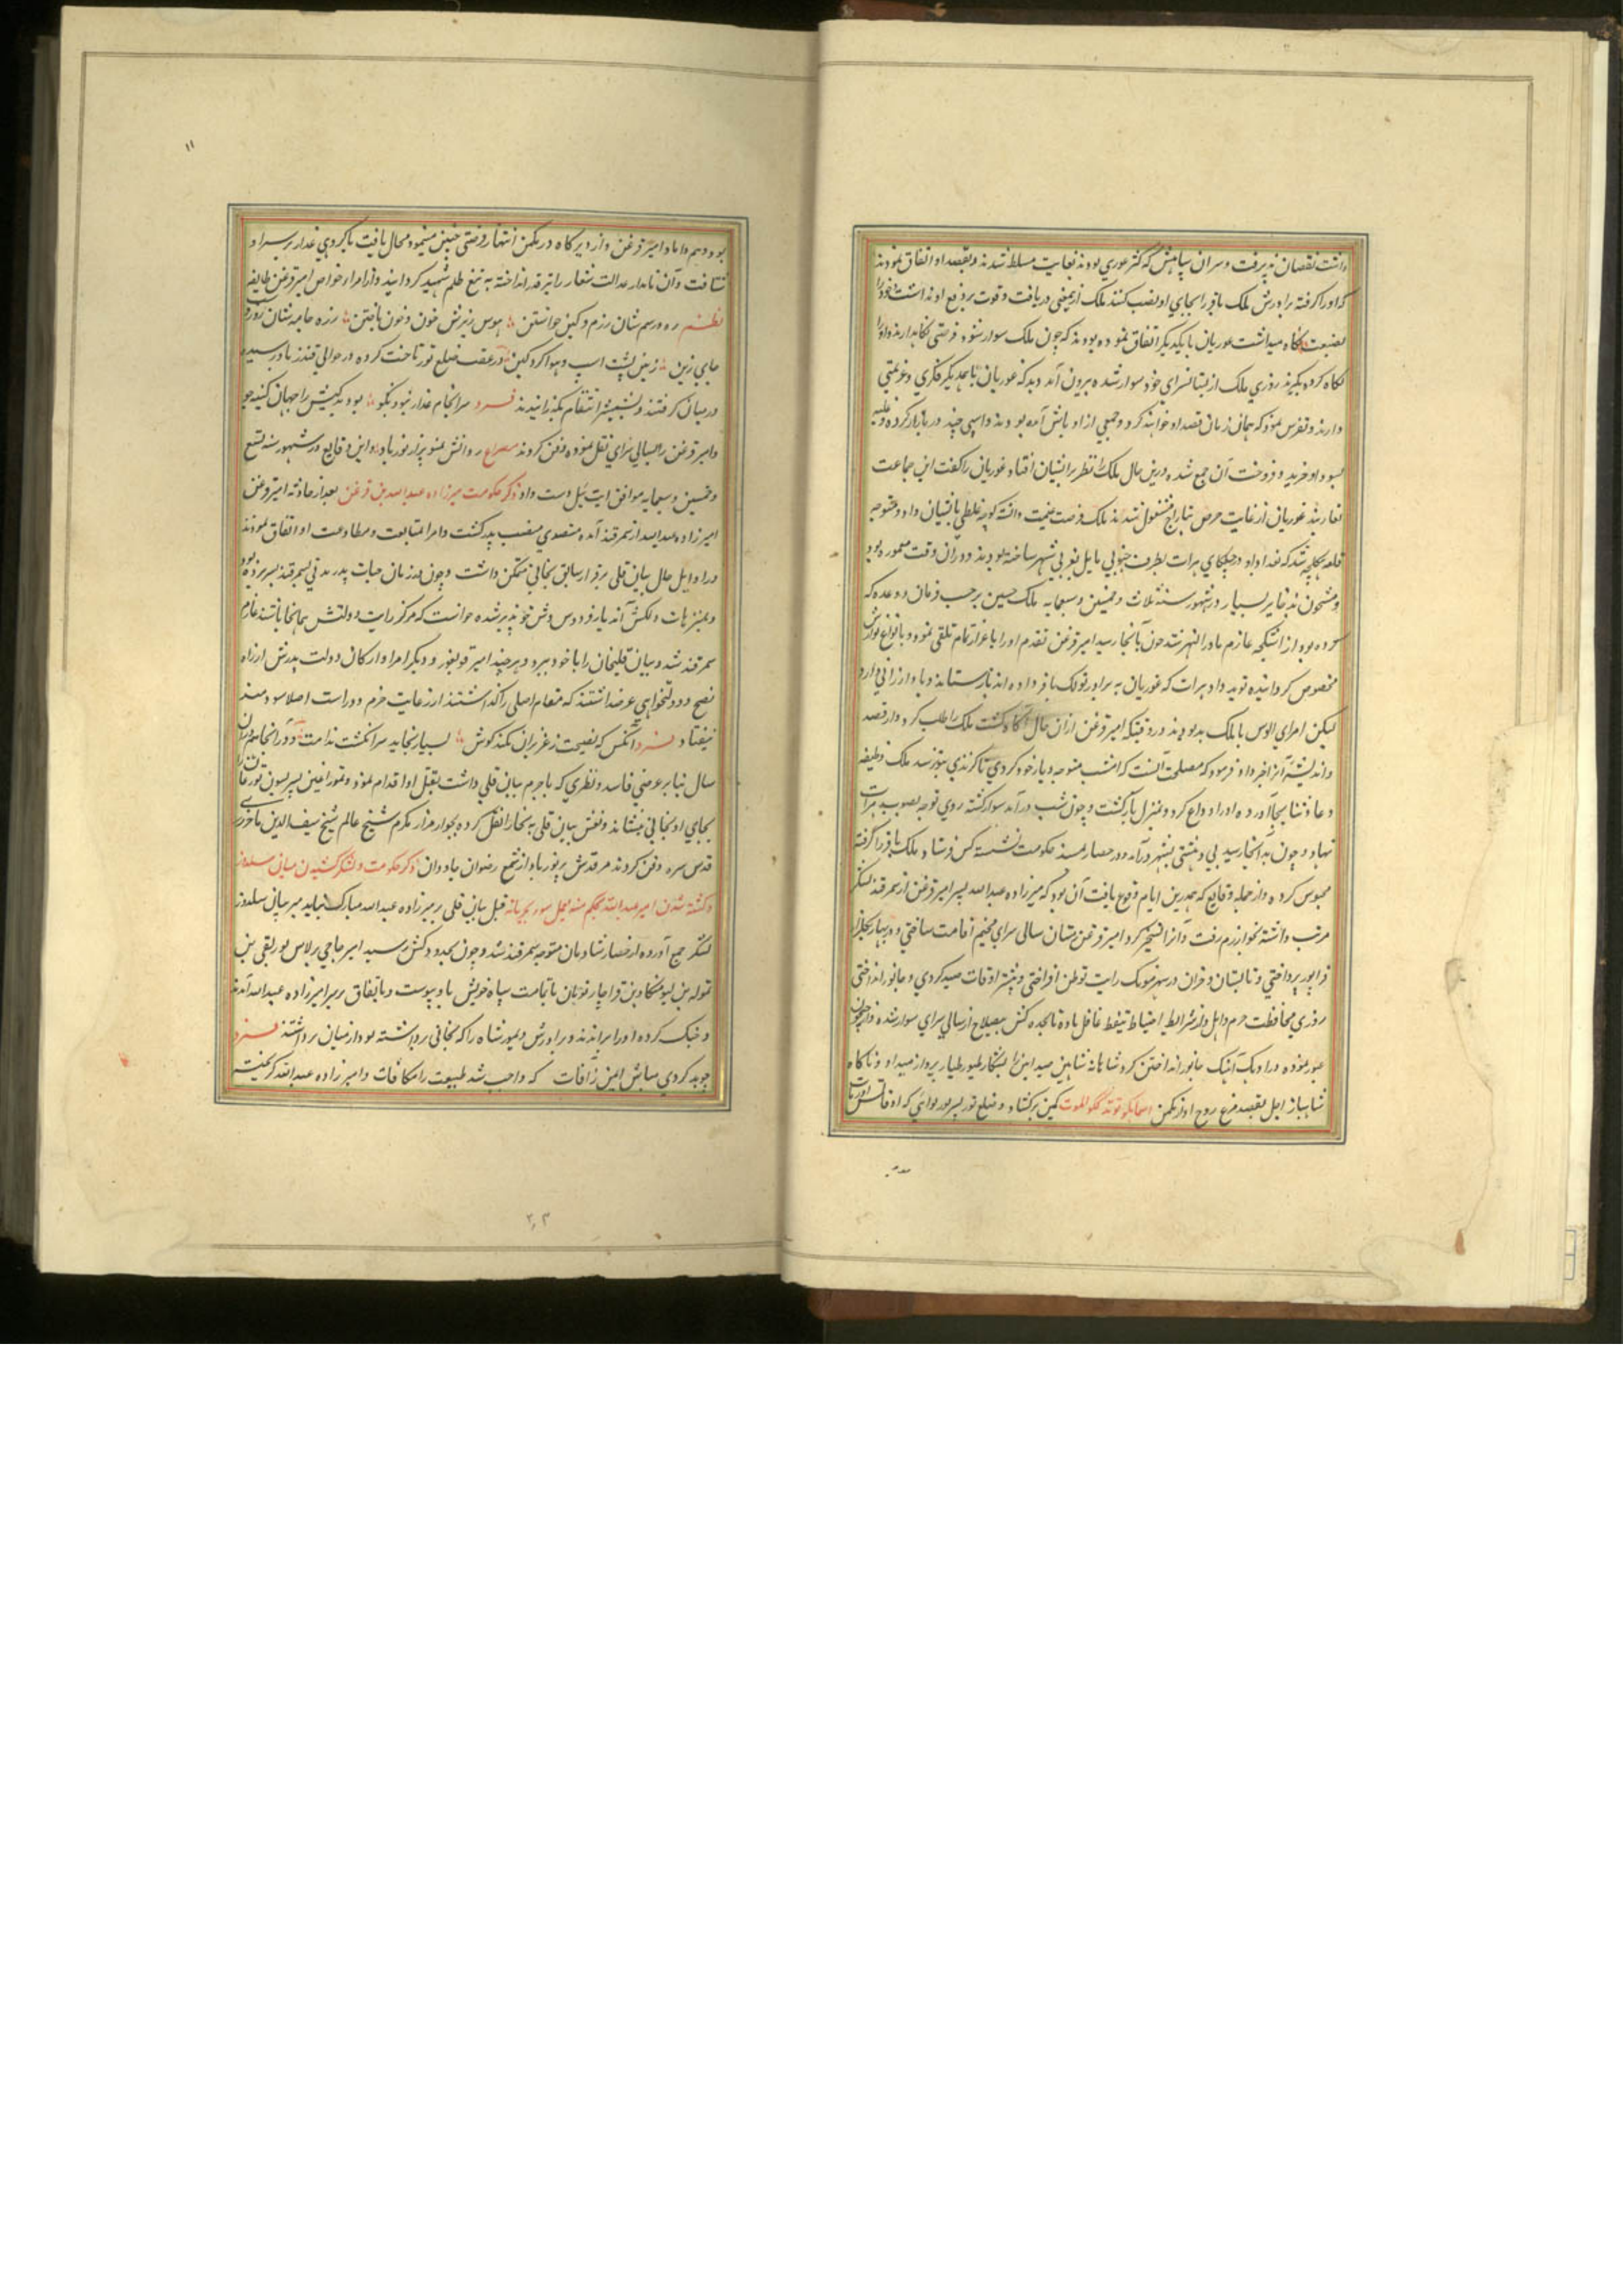 داشت نقصان پذیرفت و سران سپاهش که اکثر غوری بودند بغایت مسلط شدند و بقصد او اتفاق نمودند
که او را گرفته برادرش ملک باقر را بجای او نصب کنند ملک ازیمعنی دریافت و قوت بر دفع او نداشت خود را
بصنعت نگاه میداشت غوریان با یکدیگر اتفاق نموده بودند که چون ملک سوار شود فرصتی نگاهدارند و او را
نگاه کرده بگیرند روزی ملک از بستانسرای خود سوار شده بیرون آمد دید که غوریان با همدیگر فکری و عزیمتی
دارند و تفرس نمود که همان زمان قصد او خواهند کرد و جمعی از اوباش آمده بودند و اسپی چند در بازار کرده و غلبه
بسودا و خرید و فروخت آن جمع شده درین حال ملک را نظر برایشان افتاد غوریان را گفت این جماعت
را غارتید غوریان از غایت حرص بتاراج مشغول شدند ملک فرصت غنیمت دانسته کوچه غلطی بایشان داد و متوجه
قلعه اشکلچه شد که خداوند او در جلگای هرات بطرف جنوبی مایل بغربی شهر ساخته بودند و دران وقت معمور بود
و مشحون بذخایر بسیار در شهور سنه ثلاث و خمسین و سبعمایه ملک حسین برحسب فرمان و وعده که
کرده بود از اشکلچه عازم ماوراءالنهر شد چون بآنجا رسید امیر قزغن تقدم او را باعزاز تمام تلقی نمود و بانواع نوازش
مخصوص گردانیده نوید داد هرات که غوریان به برادر تو ملک باقر داده اند بازستاند و باو ارزانی دارد
لیکن امرای الوس با ملک بد بودند و در وقتیکه امیر قزغن ازان حال آگاه گشت ملک را طلب کرد و از قصد
و اندیشه آنها خبر داد فرمود که مصلحت آنست که امشب متوجه دیار خود گردی تا گزندی بتو نرسد ملک وظیفه
دعا و ثنا بجا آورده او را وداع کرد و بمنزل بازگشت و چون شب درآمد سوار گشته روی توجه بصوب هرات
نهاد و چون بدانجا رسید بی دهشتی بشهر درآمد و در حصار بمسند حکومت نشسته کس فرستاد و ملک باقر را گرفته
محبوس کرد و از جمله وقایع که همدرین ایام وقوع یافت آن بود که میرزاده عبدالله پسر امیر قزغن از سمرقند لشکر
مرتب داشته بخوارزم رفت و آنرا تسخیر کرد امیر قزغن زمستان سالی سرای مخیم اقامت ساختی و در بهار بجلگا
فرا پور پرداختی و تابستان و خزان در شهر مونک رایت توطن افراختی و بیشتر اوقات صید کردی و جانور انداختی
روزی محافظت حزم و اهل ولد شرایط احتیاط تیقظ غافل با ده تا یکده کس بیصلاح از سالی سرای سوار شده و از جیحون
عبور نموده در ادبک آهنگ جانور انداختن کرد شاهانه شاهین صید این را بشکار طیور طیار پرواز میداد و ناگاه
شاهباز اجل بقصد مرغ روح او از مکمن اینما تکونوا یدرککم الموت کمین برگشاد و قتلغ تیمور پسر بورلدای که او قاتلش
بود و هم داماد امیر قزغن و از دیرگاه در مکمن انتهاز فرصتی چنین میبود مجال یافت با گروهی غدار بر سر او
شتافت و آن نامدار عدالت شعار را بر قد انداخته به تیغ ظلم شهید گردانید و از امرا و خواص امیر قزغن طایفه
نظم ره و رسم شان رزم و کین خواستن هوس ریزش خون و خون باختن زره جامه شان روز و شب
جای زین زمین پشت اسپ و هوا گرد کین در عقب قتلغ تیمور تاخت کرده در حوالی قندز باو رسیده
در میان گرفتند و بشمشیر انتقام بگذرانیدند فرد سرانجام غدار نبود نکو بود بدکنش را جهان کینه جو
و امیر قزغن را بسالی سرای نقل نموده دفن کردند مصراع روانش منور پر از نور باد و این وقایع در شهور سنه تسع
و خمسین و سبعمایه موافق ایت ئیل دست داد ذکر حکومت میرزاده عبدالله بن قزغن بعد از حادثه امیر قزغن
امیرزاده عبدالله از سمرقند آمده متصدی منصب پدر گشت و امرا بمتابعت و مطاوعت او اتفاق نمودند
در اوایل حال بیان قلی برقرار سابق بخانی متمکن داشت و چون در زمان حیات پدر مدتی بسمرقند بسر برده بود
و بمنزهات دلکش آن دیار فردوس وش خو پذیر شده خواست که مرکز رایت دولتش همانجا باشد عازم
سمرقند شد و بیان قلیخان را با خود ببرد و هر چند امیر قولیغور و دیگر امرا و ارکان دولت پدرش از راه
نصح و دولتخواهی عرضه داشتند که مقام اصلی را گذاشتن از رعایت حزم دور است اصلا سودمند
نیفتاد فرد آنکس که نصیحت ز عزیزان نکند گوش بسیار بخاید سر انگشت ندامت و در آنجا همدران
سال بنابر عرضی فاسد و نظری که باحرم بیان قلی داشت بقتل او اقدام نمود و تمورا عینی پسر بسون تورقا
بجای او بخانی بنشاند و نعش بیان قلی به بخارا نقل کرده بجوار مزار مکرم شیخ عالم شیخ سیف الدین باخرزی
قدس سره دفن کردند مرقدش پرنور باد از شمع رضوان جاودان ذکر حکومت و لشکر کشیدن بیانی سلدوز
و کشته شدن امیر عبدالله بحکم من یعمل سوء یجز به قتل بیان قلی بر میرزاده عبدالله مبارک نیامد میر بیانی سلدوز
لشکر جمع آورده از حصار شادمان متوجه سمرقند شد و چون بحدود کش رسید امیر حاجی برلاس بورلقی بن
تموله بن لیسو منکا و بن قراچار نویان با تمامت سپاه خویش باو پیوست و باتفاق بر سر امیرزاده عبدالله آمدند
و جنگ کرده او را براندند و برادرش و تیمورشاه را که بخانی برداشته بود از میان برداشتند فرد
چو بد کردی مباش ایمن ز آفات که واجب شد طبیعت را مکافات و امیرزاده عبدالله گریخت